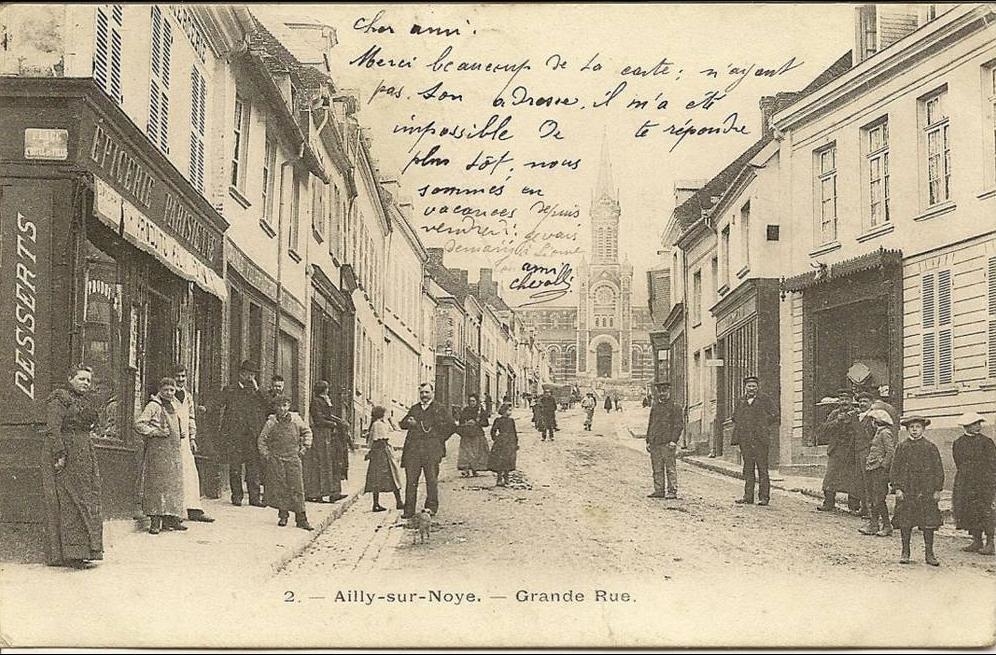 Cher ami.
Merci beaucoup de la carte; n'ayant
pas ton adresse, il m'a été
impossible de te répondre
plus tôt, nous
sommes en
vacances depuis
vendredi;
ami
ÉPICERIE PARISIENNE
DESSERTS
2. — Ailly-sur-Noye. — Grande Rue.